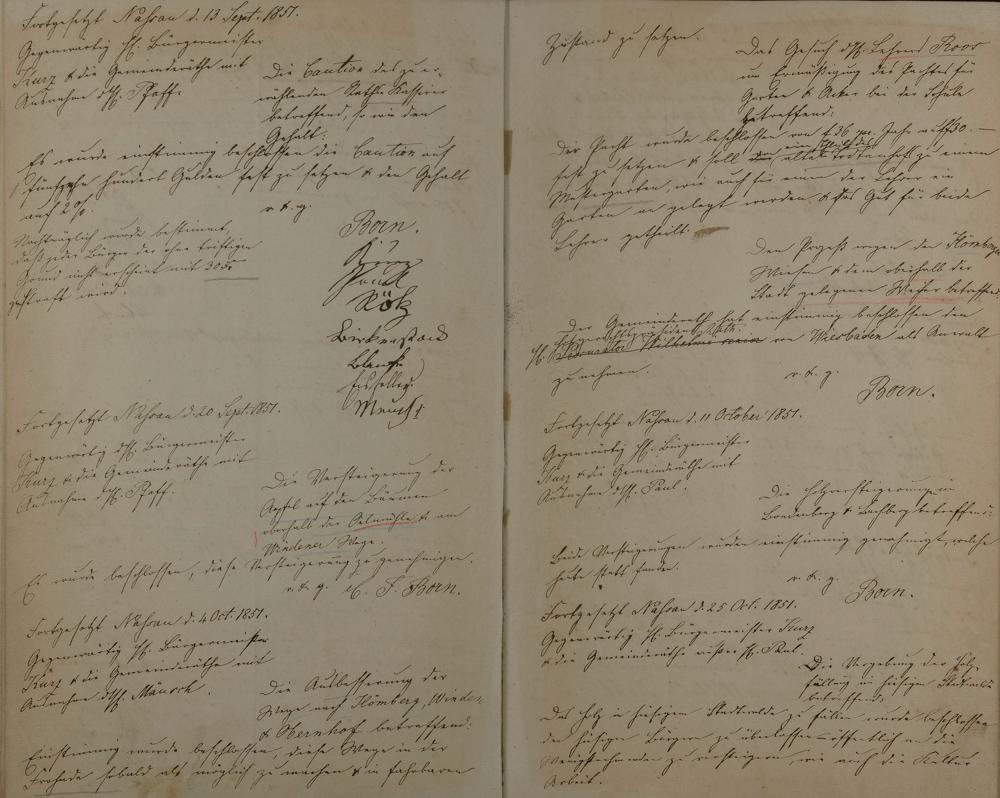 Fortgesetzt Nassau d. 13 Sept. 1851.
Gegenwärtig H. Bürgermeister
Kurz & die Gemeinderäthe mit
Ausnahme des H. Pfaff.
Die Caution des zu er-
wählenden Kassirer
betreffend, so wie den
Gehalt:
Es wurde einstimmig beschlossen die Caution auf
fünfzehn hundert Gulden fest zu setzen & den Gehalt
auf 2 %.
v. & g.
Nachträglich wurde bestimmt,
daß jeder Bürger der ohne triftigen
Grund nicht erscheint mit 30
gestraft wird.
Born.
Kurz
Paul
Kötz
Birkenstock
Blank
Mensch
Fortgesetzt Nassau d. 20 Sept. 1851.
Gegenwärtig des H. Bürgermeister
Kurz & die Gemeinderäthe mit
Ausnahme des H. Pfaff.
Die Versteigerung der
Äpfel auf den Bäumen
oberhalb der Oelmühle & am
Windener Wege.
Es wurde beschlossen, diese Versteigerung zu genehmigen.
v. & g. Born.
Fortgesetzt Nassau d. 4 Oct. 1851.
Gegenwärtig H. Bürgermeister
Kurz & die Gemeinderäthe mit
Ausnahme des H. Mänsch.
Die Ausbesserung der
Wege nach Hömberg, Winden
& Hernhof betreffend:
Einstimmig wurde beschlossen, diese Wege in der
Frohnde sobald als möglich zu machen & in fahrbaren
Zustand zu setzen.
Das Gesuch des H. Lehrers Roos
um Ermäßigung des Pachtes für
Garten & Acker bei der Schule
betreffend:
Der Pacht wurde beschlossen von f 36 pr. Jahr auf f 30.—
fest zu setzen & soll ein Theil des alten Todtenhofs zu einem
Mustergarten, wie auch für einen der Lehrer ein
Garten angelegt werden & das Gut für beide
Lehrer getheilt.
Den Prozeß wegen den Hömberger
Wiesen & dem oberhalb der
Stadt gelegenen Weiher betreffend
Der Gemeinderath hat einstimmig beschlossen den
H. Prokurator Wilhelmi von Wiesbaden als Anwalt
zu nehmen.
v. & g.
Born.
Fortgesetzt Nassau d. 11 October 1851.
Gegenwärtig H. Bürgermeister
Kurz & die Gemeinderäthe mit
Ausnahme des H. Paul.
Die Holzversteigerung in
& betreffend:
Beide Versteigerungen wurden einstimmig genehmigt, welche
heute statt fanden.
v. & g.
Born.
Fortgesetzt Nassau d. 25 Oct. 1851.
Gegenwärtig H. Bürgermeister Kurz
& die Gemeinderäthe außer H. Paul.
Die Vergebung der Holz-
fällung in hiesigen Stadtwalde
betreffend:
Das Holz in hiesigen Stadtwalde zu fällen, wurde beschlossen
den hiesigen Bürgern zu überlassen öffentlich an die
Wenigstnehmenden zu versteigern, wie auch die Kultur
Arbeit.